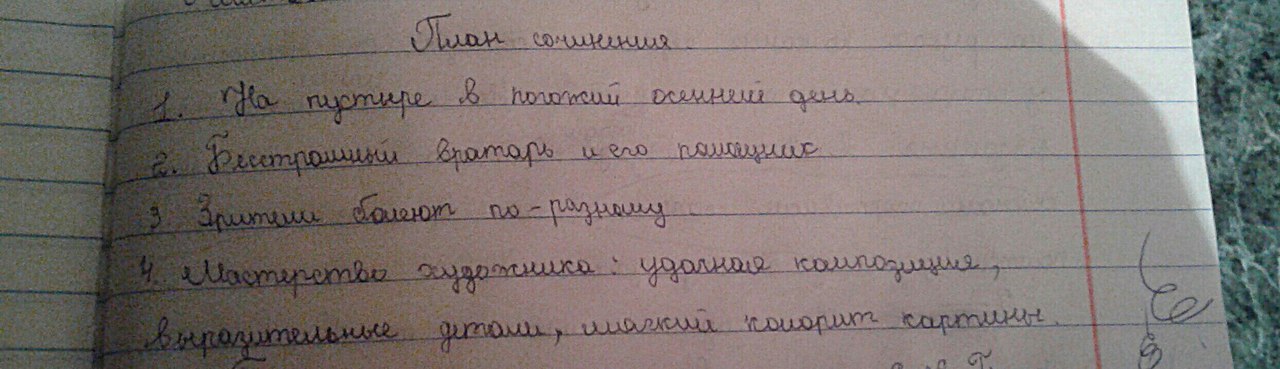 План сочинения
1. На пустыре в погожий осенний день.
2. Бесстрашный вратарь и его помощник
3. Зрители болеют по-разному
4. Мастерство художника: удачная композиция,
выразительные детали, мягкий колорит картины.